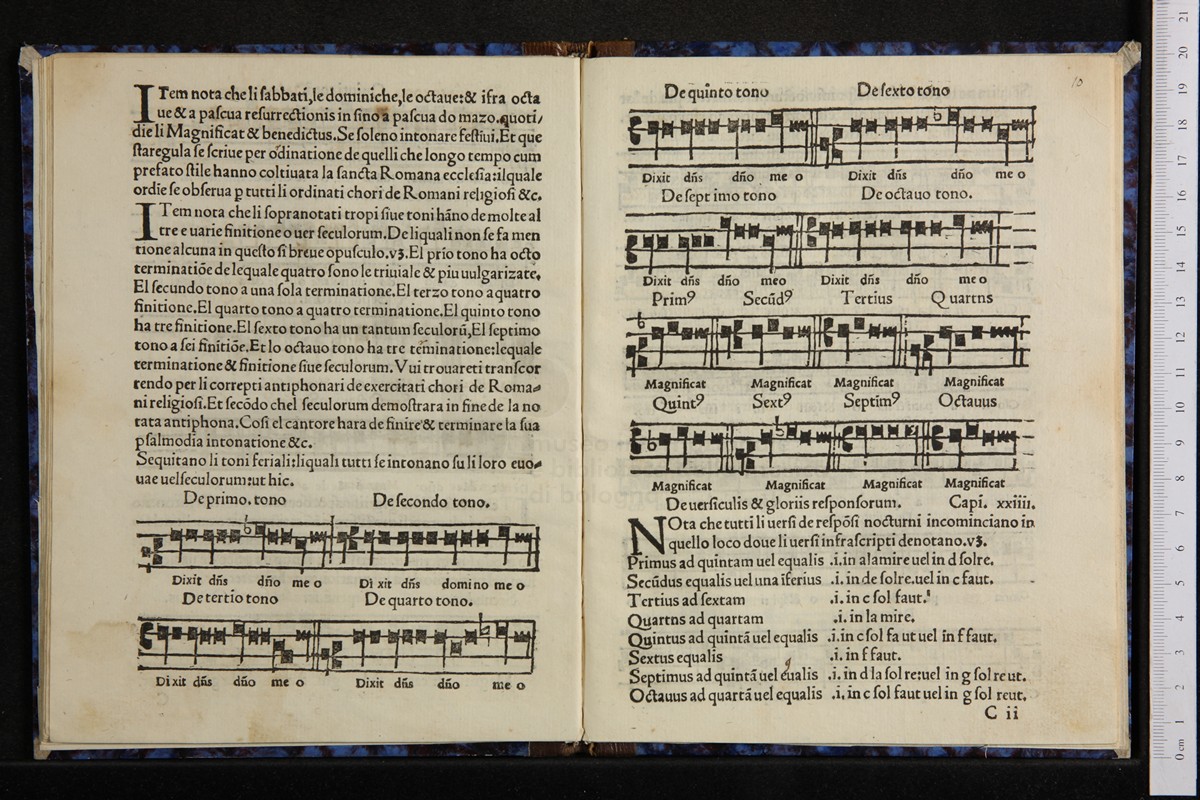 ITem nota che li sabbati, le dominiche, le octaue: & ifra octa
ue & a pascua resurrectionis in sino a pascua do mazo. quoti/
die li Magnificat & benedictus. Se soleno intonare festiui. Et que
sta regula se scriue per ordinatione de quelli che longo tempo cum
prefato stile hanno coltiuata la sancta Romana ecclesia: il quale
ordie se obserua p tutti li ordinati chori de Romani religiosi &c.
ITem nota che li sopranotati tropi siue toni hãno de molte al
tre e uarie finitione o uer seculorum. De li quali non se fa men
tione alcuna in questo si breue opusculo. vꝫ. El prio tono ha octo
terminatiõe de lequale quatro sono le triuiale & piu uulgarizate.
El secundo tono a una sola terminatione. El terzo tono a quatro
finitione. El quarto tono a quatro terminatione. El quinto tono
ha tre finitione. El sexto tono ha un tantum seculorũ, El septimo
tono a sei finitiõe. Et lo octauo tono ha tre teminatine: lequale
terminatione & finitione siue seculorum. Vui trouareti transcor
rendo per li correpti antiphonari de exercitati chori de Roma⸗
ni religiosi. Et secõdo chel seculorum demostrara in fine de la no
tata antiphona. Cosi el cantore hara de finire & terminare la sua
psalmodia intonatione &c.
Sequitano li toni feriali: li quali tutti se intonano su li loro euo⸗
uae uel seculorum: ut hic.
De primo. tono De secondo tono.
Dixit dñs dño me o Di xit dñs domino me o
De tertio tono De quarto tono.
Dixit dñs dño me o Dixit dñs dño me o
10
De quinto tono De sexto tono
Dixit dñs dño me o Dixit dñs dño me o
De sept imo tono De octauo tono.
Dixit dñs dño meo Dixit dñs dño me o
Primꝰ Secũdꝰ Tertius Quartns
Magnificat Magnificat Magnificat Magnificat
Quintꝰ Sextꝰ Septimꝰ Octauus
Magnificat Magnificat Magnificat Magnificat
De uersiculis & gloriis responsorum. Capi. xxiiii.
NOta che tutti li uersi de respõsi nocturni incominciano in
quello loco doue li uersi infrascripti denotano. vꝫ.
Primus ad quintam uel equalis .i. in alamire uel in d solre.
Secũdus equalis uel una iferius .i. in de solre. uel in c faut.
Tertius ad sextam .i. in c sol faut.
Quartns ad quartam .i. in la mire.
Quintus ad quintã uel equalis .i. in c sol fa ut uel in f faut.
Sextus equalis .i. in f faut.
Septimus ad quintã uel equalis .i. in d la sol re: uel in g sol re ut.
Octauus ad quartã uel equalis .i. in c sol faut uel in g sol reut.
C ii